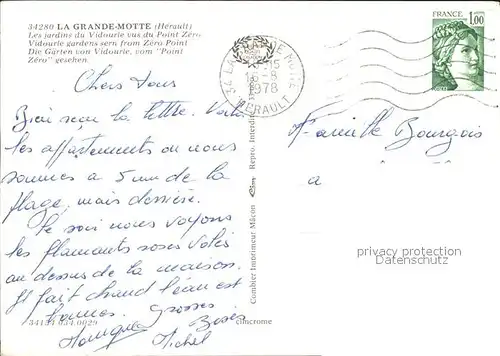 34280 LA GRANDE-MOTTE (Hérault)
Les jardins du Vidourle vus du Point Zéro
Vidourle gardens seen from Zéro Point
Die Gärten von Vidourle, vom "Point
Zéro" gesehen.
34 LA GRANDE MOTTE
15
-8
1978
HERAULT
FRANCE
1,00
Chers tous
Bien reçu la lettre. Voilà
les appartements où nous
sommes à 5 mn de la
plage, mais derrière.
Le soir nous voyons
les flamants roses voler
au dessus de la maison.
Il fait chaud l'eau est
bonne. Grosses
Bises
Michel
Famille Bourgois
a
Combier Imprimeur Mâcon
Repro. Interdite
34154 034.0029
cimcrome
privacy protection
Datenschutz